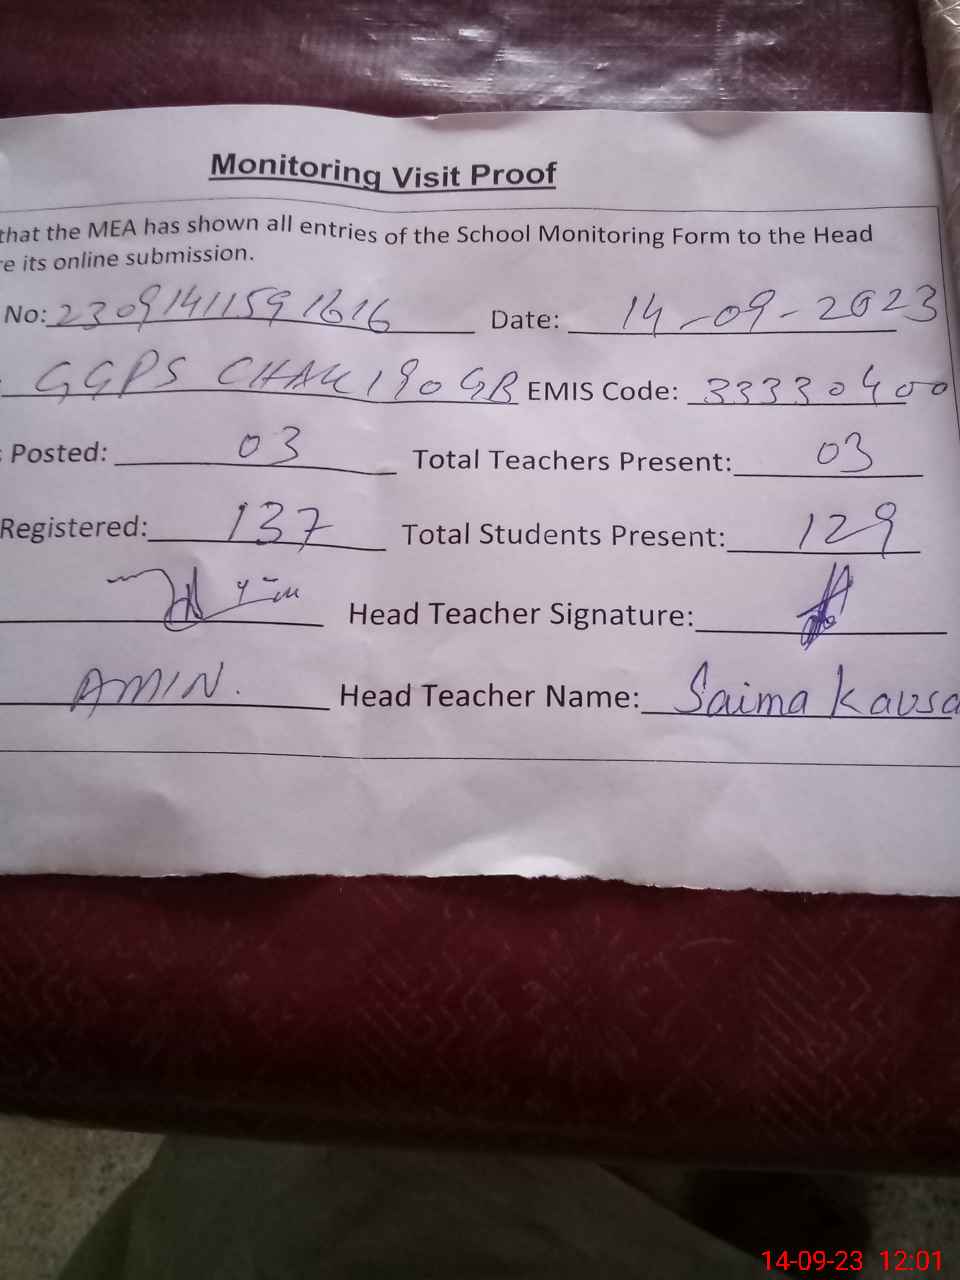 Monitoring Visit Proof
that the MEA has shown all entries of the School Monitoring Form to the Head
e its online submission.
No: 2309141159 1616 Date: 14-09-2023
GGPS CHAK 190 GB EMIS Code: 33330400
Posted: 03 Total Teachers Present: 03
Registered: 137 Total Students Present: 129
Head Teacher Signature:
AMIN. Head Teacher Name: Saima Kausa
14-09-23 12:01